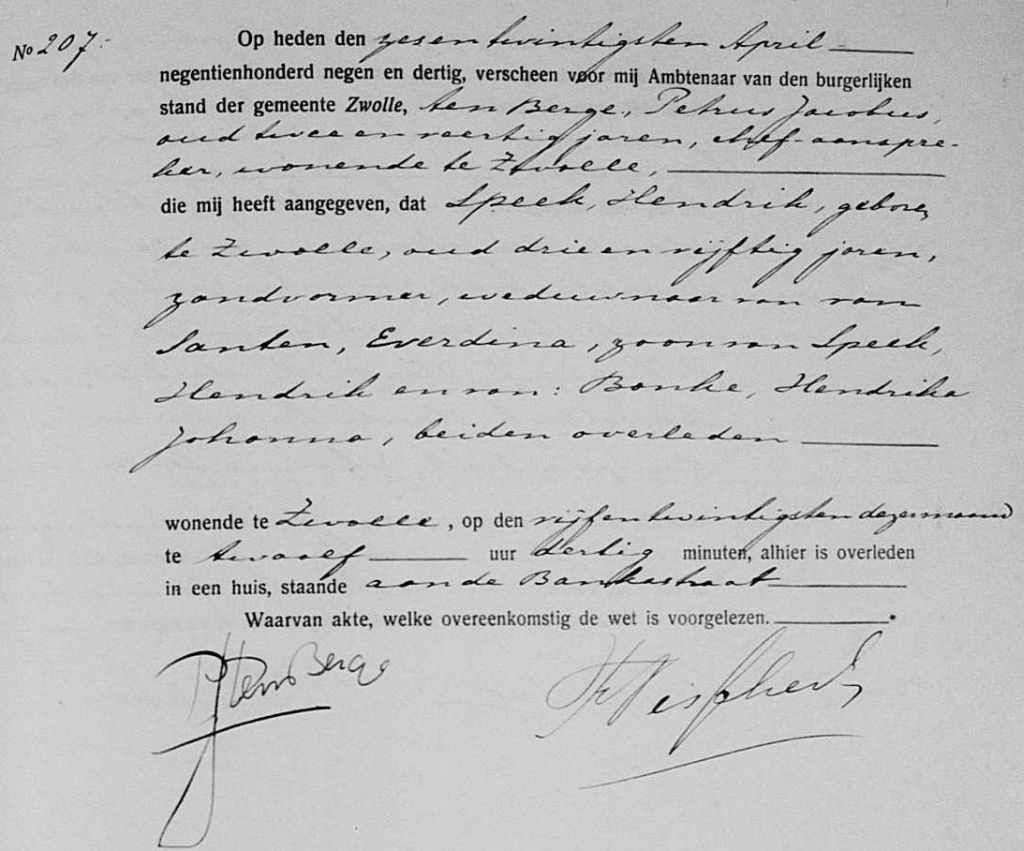 No 207.-
Op heden den zesentwintigsten April
negentienhonderd negen en dertig, verscheen voor mij Ambtenaar van den burgerlijken
stand der gemeente Zwolle, ten Berge, Petrus Jacobus,
oud twee en veertig jaren, chef-aanspre-
ker, wonende te Zwolle,
die mij heeft aangegeven, dat Speek, Hendrik, geboren
te Zwolle, oud drie en vijftig jaren,
zandvormer, weduwnaar van van
Santen, Everdina, zoon van Speek,
Hendrik en van: Bonke, Hendrika
Johanna, beiden overleden
wonende te Zwolle, op den vijfentwintigsten dezer maand
te twaalf uur dertig minuten, alhier is overleden
in een huis, staande aan de Bankastraat
Waarvan akte, welke overeenkomstig de wet is voorgelezen.
PJ ten Berge